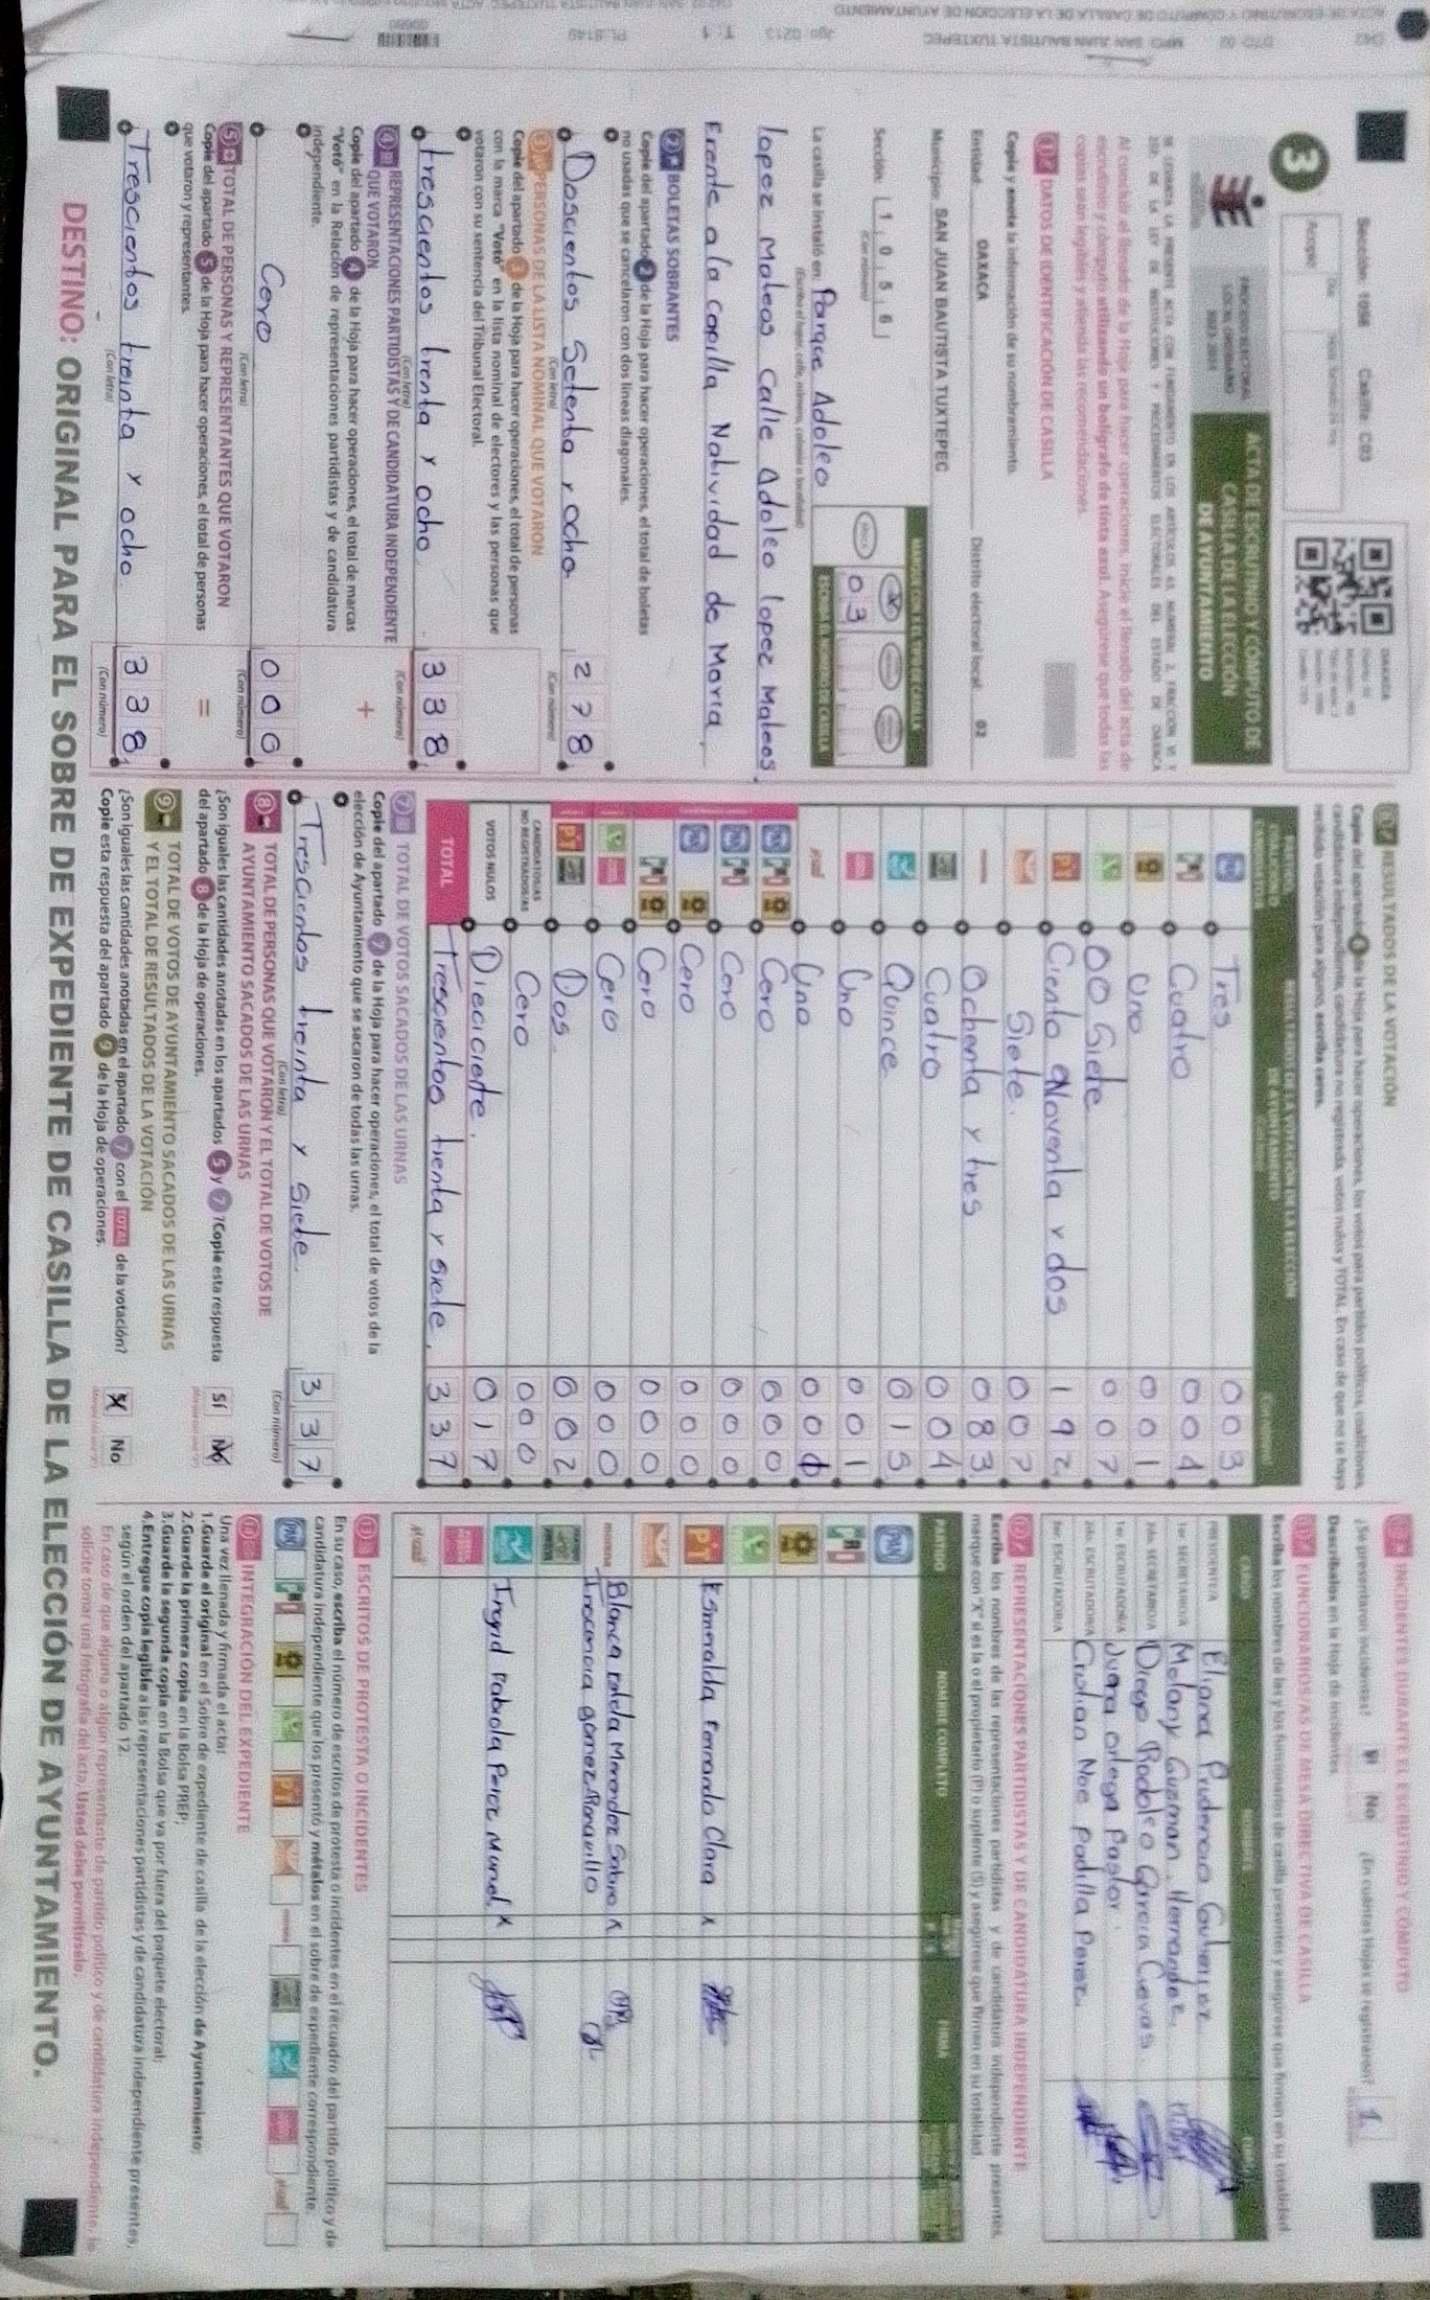 Sección: 1056 Casilla: C03
OAXACA
3
PROCESO ELECTORAL
LOCAL ORDINARIO
2023-2024
ACTA DE ESCRUTINIO Y CÓMPUTO DE
CASILLA DE LA ELECCIÓN
DE AYUNTAMIENTO
Al concluir el llenado de la Hoja para hacer operaciones, inicie el llenado del acta de
escrutinio y cómputo utilizando un bolígrafo de tinta azul. Asegúrese que todas las
copias sean legibles y atienda las recomendaciones.
1 DATOS DE IDENTIFICACIÓN DE CASILLA
Copie y anote la información de su nombramiento.
Entidad: OAXACA Distrito electoral local: 02
Municipio: SAN JUAN BAUTISTA TUXTEPEC
Sección: 1 0 5 6
(Con número)
MARQUE CON X EL TIPO DE CASILLA
ESCRIBA EL NÚMERO DE CASILLA
0 3
La casilla se instaló en: Parque Adolfo
(Escriba el lugar, calle, número, colonia o localidad)
lopez Mateos Calle Adolfo lopez Mateos.
Frente a la Capilla Natividad de Maria
2 BOLETAS SOBRANTES
Copie del apartado 2 de la Hoja para hacer operaciones, el total de boletas
no usadas que se cancelaron con dos líneas diagonales.
Doscientos Setenta y ocho 2 7 8
(Con letra) (Con número)
3 PERSONAS DE LA LISTA NOMINAL QUE VOTARON
Copie del apartado 3 de la Hoja para hacer operaciones, el total de personas
con la marca "Votó" en la lista nominal de electores y las personas que
votaron con su sentencia del Tribunal Electoral.
trescientos trenta y ocho 3 3 8
(Con letra) (Con número)
4 REPRESENTACIONES PARTIDISTAS Y DE CANDIDATURA INDEPENDIENTE
QUE VOTARON
+
Copie del apartado 4 de la Hoja para hacer operaciones, el total de marcas
"Votó" en la Relación de representaciones partidistas y de candidatura
independiente.
Cero 0 0 0
(Con letra) (Con número)
5 TOTAL DE PERSONAS Y REPRESENTANTES QUE VOTARON
=
Copie del apartado 5 de la Hoja para hacer operaciones, el total de personas
que votaron y representantes.
Trescientos treinta y ocho 3 3 8
(Con letra) (Con número)
6 RESULTADOS DE LA VOTACIÓN
Copie del apartado 6 de la Hoja para hacer operaciones, los votos para partidos políticos, coaliciones,
candidatura independiente, candidatura no registrada, votos nulos y TOTAL. En caso de que no se haya
recibido votación para alguno, escriba ceros.
RESULTADOS DE LA VOTACIÓN DE LA ELECCIÓN
DE AYUNTAMIENTO
PAN Tres 003
PRI Cuatro 004
Uno 001
00 Siete 007
PT Ciento Noventa y dos 192
Siete. 007
Ochenta y tres 083
Cuatro 004
Quince 015
Uno 001
Uno 00
Cero 000
Cero 000
Cero 000
Cero 000
Cero 000
PT Dos 002
CANDIDATOS/AS
NO REGISTRADOS/AS Cero 000
VOTOS NULOS Diecisiete. 017
TOTAL Trescientos trenta y siete. 337
7 TOTAL DE VOTOS SACADOS DE LAS URNAS
Copie del apartado 7 de la Hoja para hacer operaciones, el total de votos de la
elección de Ayuntamiento que se sacaron de todas las urnas.
Trescientos treinta y siete. 3 3 7
(Con letra) (Con número)
8 TOTAL DE PERSONAS QUE VOTARON Y EL TOTAL DE VOTOS DE
AYUNTAMIENTO SACADOS DE LAS URNAS
¿Son iguales las cantidades anotadas en los apartados 5 y 7? Copie esta respuesta
del apartado 8 de la Hoja de operaciones. Sí No
9 TOTAL DE VOTOS DE AYUNTAMIENTO SACADOS DE LAS URNAS
Y EL TOTAL DE RESULTADOS DE LA VOTACIÓN
¿Son iguales las cantidades anotadas en el apartado 7 con el TOTAL de la votación?
Copie esta respuesta del apartado 9 de la Hoja de operaciones. No
10 INCIDENTES DURANTE EL ESCRUTINIO Y CÓMPUTO
¿Se presentaron incidentes? No ¿En cuántas Hojas se registraron? 1
Descríbalos en la Hoja de incidentes.
11 FUNCIONARIOS/AS DE MESA DIRECTIVA DE CASILLA
Escriba los nombres de las y los funcionarios de casilla presentes y asegúrese que firmen en su totalidad
CARGO NOMBRE FIRMA
PRESIDENTE/A Eliana Prudencio
1er. SECRETARIO/A Melany Guzman Hernandez
2do. SECRETARIO/A Diego Rodolfo Garcia Cuevas
1er. ESCRUTADOR/A ortega Pastor.
2do. ESCRUTADOR/A Cristian Noe Padilla Perez.
3er. ESCRUTADOR/A
12 REPRESENTACIONES PARTIDISTAS Y DE CANDIDATURA INDEPENDIENTE
Escriba los nombres de las representaciones partidistas y de candidatura independiente presentes,
marque con "X" si es la o el propietario (P) o suplente (S) y asegúrese que firmen en su totalidad.
PARTIDO NOMBRE COMPLETO FIRMA
PAN
PRI
PT Esmeralda Ferrando Clara X
morena Blanca
gomez Ronquillo
Ingrid Fabiola Perez X
13 ESCRITOS DE PROTESTA O INCIDENTES
En su caso, escriba el número de escritos de protesta o incidentes en el recuadro del partido político y de
candidatura independiente que los presentó y métalos en el sobre de expediente correspondiente.
14 INTEGRACIÓN DEL EXPEDIENTE
Una vez llenada y firmada el acta:
1.Guarde el original en el Sobre de expediente de casilla de la elección de Ayuntamiento;
2.Guarde la primera copia en la Bolsa PREP;
3.Guarde la segunda copia en la Bolsa que va por fuera del paquete electoral;
4.Entregue copia legible a las representaciones partidistas y de candidatura independiente presentes,
según el orden del apartado 12.
En caso de que alguna o algún representante de partido político y de candidatura independiente, le
solicite tomar una fotografía del acta, Usted debe permitírselo.
DESTINO: ORIGINAL PARA EL SOBRE DE EXPEDIENTE DE CASILLA DE LA ELECCIÓN DE AYUNTAMIENTO.